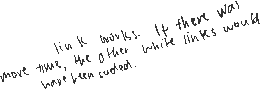 link works. If there was
move time, the other white links would
have been sucted.